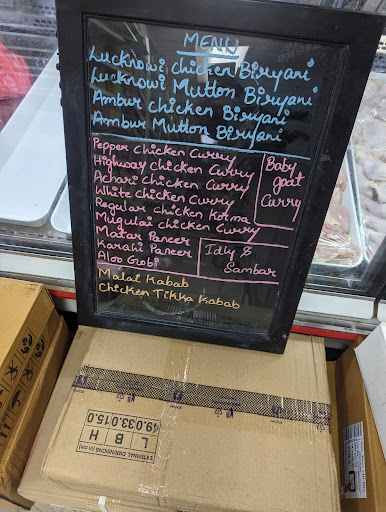 MENU
Lucknowi Chicken Biryani
Lucknowi Mutton Biryani
Ambur Chicken Biryani
Ambur Mutton Biryani
Pepper Chicken Curry
Highway Chicken Curry
Achari Chicken Curry
White Chicken Curry
Regular Chicken Korma
Mugulai Chicken Curry
Matar Paneer
Karahi Paneer
Aloo Gobi
Baby
goat
Curry
Idly &
Sambar
Malai Kabab
Chicken Tikka Kabab
L B H
49.0 33.0 15.0
EXTERNAL DIMENSIONS (in cm)